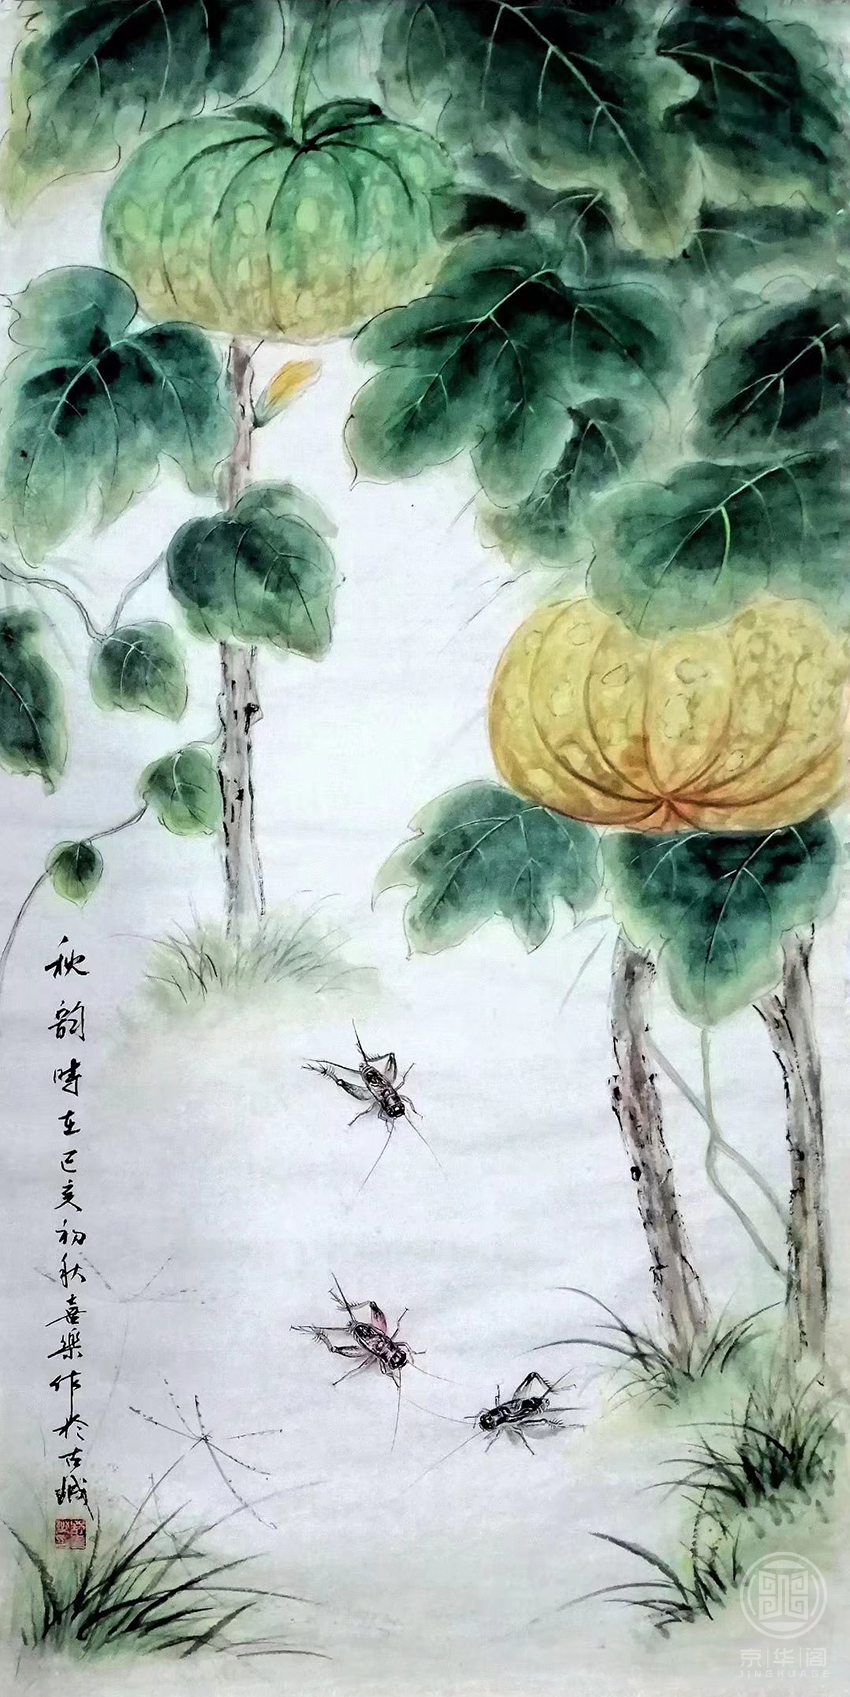 秋韵時在己亥初秋喜樂作於古城
京|华|阁
JINGHUAGE